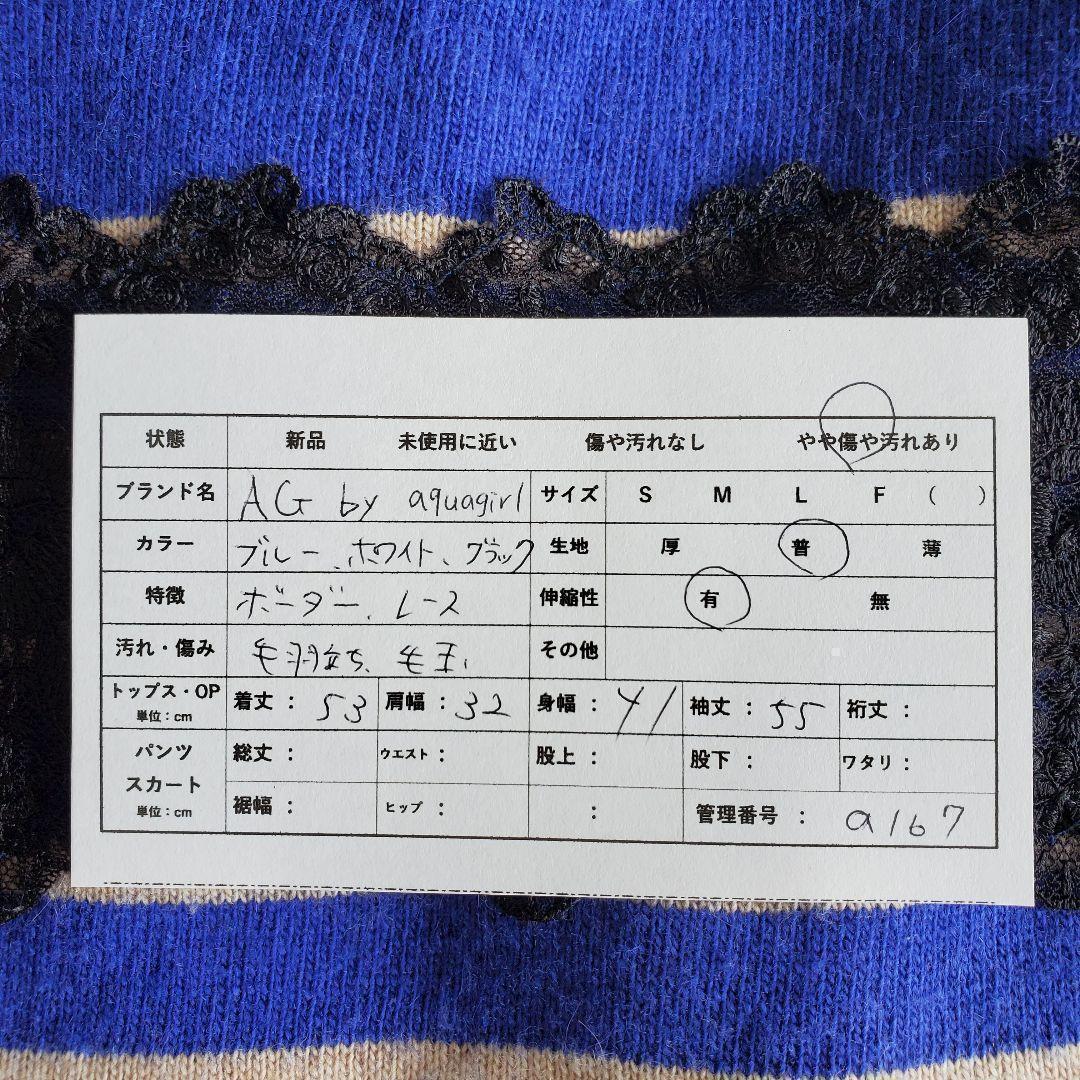 状態 新品 未使用に近い 傷や汚れなし やや傷や汚れあり
ブランド名 AG by aquagirl サイズ S M L F ( )
カラー ブルー、ホワイト、ブラック 生地 厚 普 薄
特徴 ボーダー、レース 伸縮性 有 無
汚れ・傷み 毛羽立ち、毛玉、 その他
トップス・OP 単位:cm 着丈: 53 肩幅: 32 身幅: 41 袖丈: 55 裄丈:
パンツ 総丈: ウエスト: 股上: 股下: ワタリ:
スカート 単位:cm 裾幅: ヒップ: : 管理番号 : a167